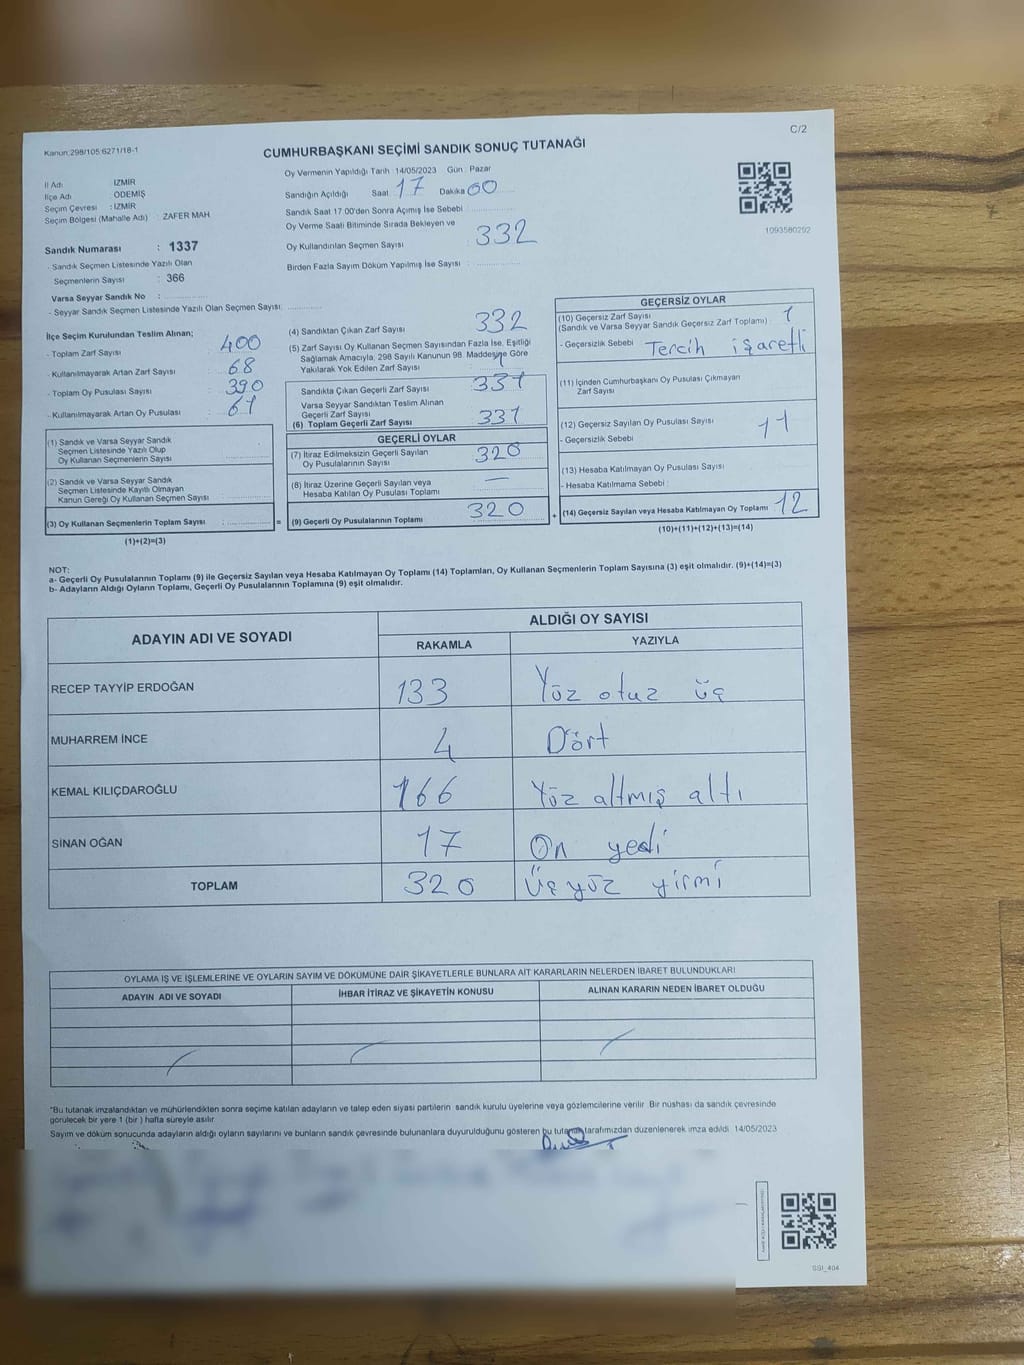 C/2
Kanun:298/105 6271/18-1
CUMHURBAŞKANI SEÇİMİ SANDIK SONUÇ TUTANAĞI
İl Adı İZMİR
İlçe Adı ÖDEMİŞ
Seçim Çevresi : İZMİR
Seçim Bölgesi (Mahalle Adı) : ZAFER MAH.
Oy Vermenin Yapıldığı Tarih 14/05/2023 Gün : Pazar
Sandığın Açıldığı Saat 17 Dakika 00
Sandık Saat 17.00'den Sonra Açımış İse Sebebi
Oy Verme Saati Bitiminde Sırada Bekleyen ve
Oy Kullandırılan Seçmen Sayısı : 332
Birden Fazla Sayım Döküm Yapılmış İse Sayısı :
1093580202
Sandık Numarası : 1337
- Sandık Seçmen Listesinde Yazılı Olan
Seçmenlerin Sayısı : 366
Varsa Seyyar Sandık No :
- Seyyar Sandık Seçmen Listesinde Yazılı Olan Seçmen Sayısı:
İlçe Seçim Kurulundan Teslim Alınan;
- Toplam Zarf Sayısı : 400
- Kullanılmayarak Artan Zarf Sayısı : 68
- Toplam Oy Pusulası Sayısı : 390
- Kullanılmayarak Artan Oy Pusulası : 61
(1) Sandık ve Varsa Seyyar Sandık
Seçmen Listesinde Yazılı Olup
Oy Kullanan Seçmenlerin Sayısı
(2) Sandık ve Varsa Seyyar Sandık
Seçmen Listesinde Kayıtlı Olmayan
Kanun Gereği Oy Kullanan Seçmen Sayısı
(3) Oy Kullanan Seçmenlerin Toplam Sayısı : =
(1)+(2)=(3)
(4) Sandıktan Çıkan Zarf Sayısı : 332
(5) Zarf Sayısı Oy Kullanan Seçmen Sayısından Fazla İse, Eşitliği
Sağlamak Amacıyla, 298 Sayılı Kanunun 98. Maddesine Göre
Yakılarak Yok Edilen Zarf Sayısı : 1
Sandıkta Çıkan Geçerli Zarf Sayısı : 331
Varsa Seyyar Sandıktan Teslim Alınan
Geçerli Zarf Sayısı
(6) Toplam Geçerli Zarf Sayısı : 331
GEÇERLİ OYLAR
(7) İtiraz Edilmeksizin Geçerli Sayılan
Oy Pusulalarının Sayısı : 320
(8) İtiraz Üzerine Geçerli Sayılan veya
Hesaba Katılan Oy Pusulası Toplamı : —
(9) Geçerli Oy Pusulalarının Toplamı 320 +
GEÇERSİZ OYLAR
(10) Geçersiz Zarf Sayısı
(Sandık ve Varsa Seyyar Sandık Geçersiz Zarf Toplamı) : 1
- Geçersizlik Sebebi : Tercih işaretli
(11) İçinden Cumhurbaşkanı Oy Pusulası Çıkmayan
Zarf Sayısı
(12) Geçersiz Sayılan Oy Pusulası Sayısı : 11
- Geçersizlik Sebebi
(13) Hesaba Katılmayan Oy Pusulası Sayısı
- Hesaba Katılmama Sebebi :
(14) Geçersiz Sayılan veya Hesaba Katılmayan Oy Toplamı : 12
(10)+(11)+(12)+(13)=(14)
NOT:
a- Geçerli Oy Pusulalarının Toplamı (9) ile Geçersiz Sayılan veya Hesaba Katılmayan Oy Toplamı (14) Toplamları, Oy Kullanan Seçmenlerin Toplam Sayısına (3) eşit olmalıdır. (9)+(14)=(3)
b- Adayların Aldığı Oyların Toplamı, Geçerli Oy Pusulalarının Toplamına (9) eşit olmalıdır.
ADAYIN ADI VE SOYADI ALDIĞI OY SAYISI
RAKAMLA YAZIYLA
RECEP TAYYİP ERDOĞAN 133 Yüz otuz üç
MUHARREM İNCE 4 Dört
KEMAL KILIÇDAROĞLU 166 Yüz altmış altı
SİNAN OĞAN 17 On yedi
TOPLAM 320 Üç yüz yirmi
OYLAMA İŞ VE İŞLEMLERİNE VE OYLARIN SAYIM VE DÖKÜMÜNE DAİR ŞİKAYETLERLE BUNLARA AİT KARARLARIN NELERDEN İBARET BULUNDUKLARI
ADAYIN ADI VE SOYADI İHBAR İTİRAZ VE ŞİKAYETİN KONUSU ALINAN KARARIN NEDEN İBARET OLDUĞU
*Bu tutanak imzalandıktan ve mühürlendikten sonra seçime katılan adayların ve talep eden siyasi partilerin sandık kurulu üyelerine veya gözlemcilerine verilir. Bir nüshası da sandık çevresinde
görülecek bir yere 1 (bir) hafta süreyle asılır.
Sayım ve döküm sonucunda adayların aldığı oyların sayılarını ve bunların sandık çevresinde bulunanlara duyurulduğunu gösteren bu tutanak tarafımızdan düzenlenerek imza edildi. 14/05/2023
SSI_404